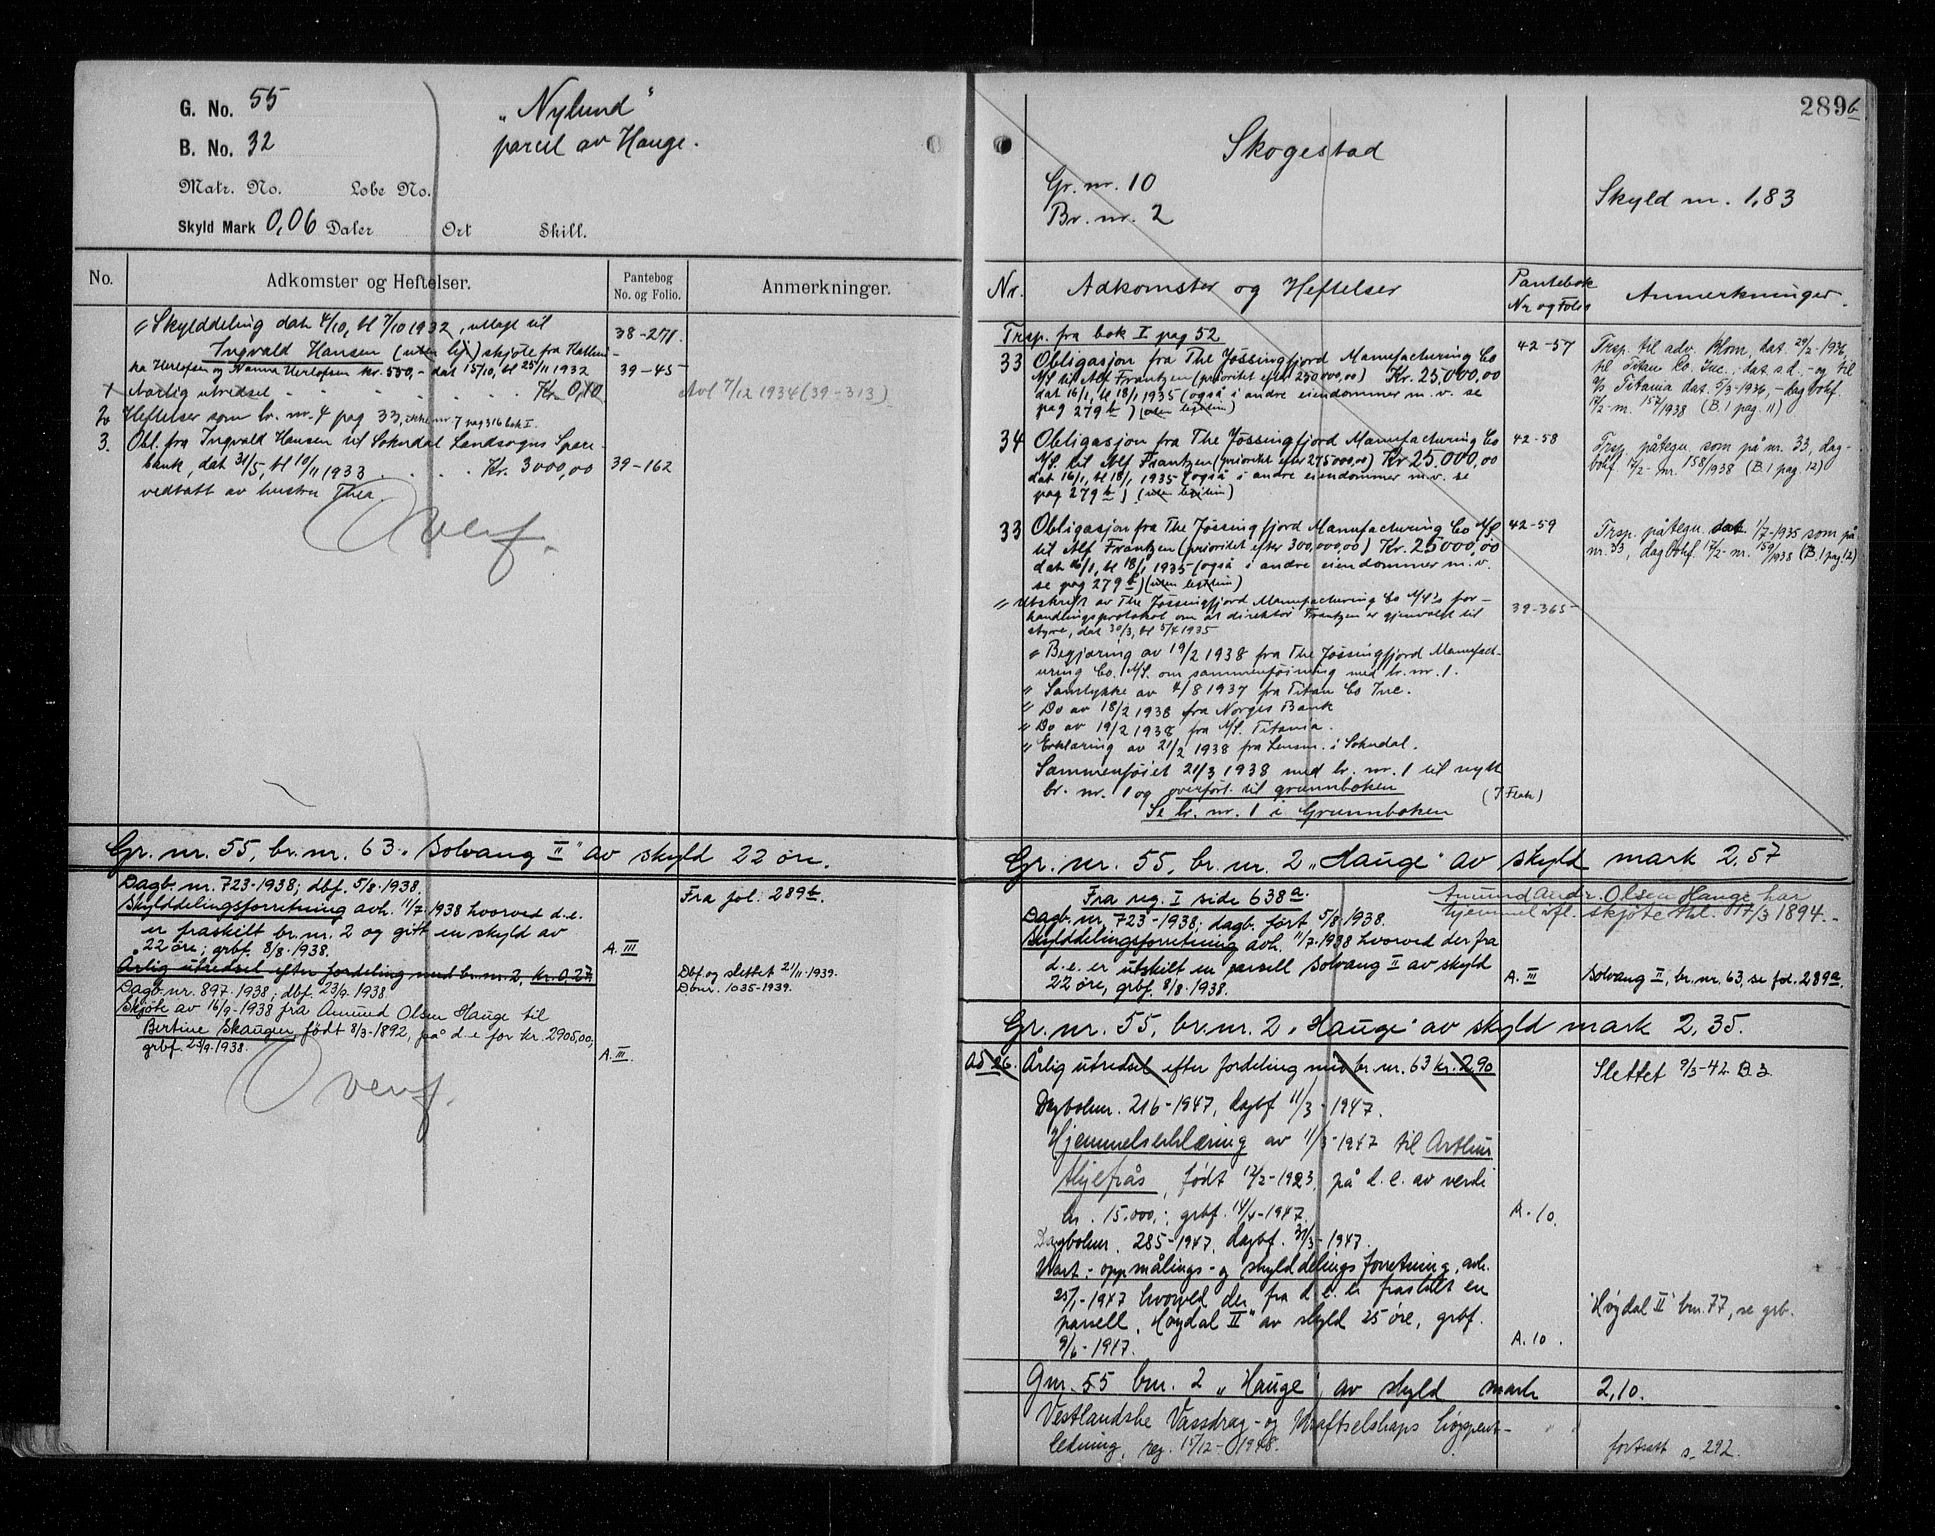 G. No. 55
B. No. 32
Matr. No. Løbe No.
Skyld Mark 0,06 Daler Ort Skill.
"Nylund"
parcel av Hauge.
No. Adkomster og Heftelser. Pantebog No. og Folio. Anmerkninger.
" Skylddeling dat 4/10, tl 7/10 1932, utlagt til 38-271.
Ingvald Hansen (uten lij) skjøte fra Kathri-
ka Herlofsen og Hanna Herlofsen kr. 550,- dat 15/10, tl 25/11 1932 39-45
1 Aarlig utredsel Kr. 0,10 Avl 7/12 1934 (39-313)
2 Heftelser som br. nr. 4 pag 33, nr 7 pag 316 bok I.
3. Obl. fra Ingvald Hansen til Sokndal Landsogns Spare-
bank, dat 31/5, tl 10/11 1933 Kr. 3000,00 39-162
vedtatt av hustru Thea.
Overf.
Gr. nr. 55, br. nr. 63 "Solvang II" av skyld 22 øre.
Dagb. nr. 723-1938; dbf. 5/8-1938. Fra fol. 289b.
Skylddelingsforretning avh. 11/7-1938 hvorved d.e.
er fraskilt br. nr. 2 og gitt en skyld av
22 øre; grbf. 8/8-1938. A. III
Årlig utredsel efter fordeling med br. nr. 2, kr. 0,27 Dbf. og slettet 21/11-1939.
Dagb. nr. 897-1938; dbf. 23/9-1938. Dbnr. 1035-1939.
Skjøte av 16/9-1938 fra Amund Olsen Hauge til
Bertine Skaugen, født 8/3-1892, på d.e. for kr. 2905,00,
grbf. 23/9-1938. A. III.
Overf.
289b
Skogestad
Gr. nr. 10
Br. nr. 2
Skyld m. 1,83
Nr. Adkomster og Heftelser Pantebok Nr og Folio Anmerkninger.
Trsp. fra bok I pag 52
33 Obligasjon fra The Jøssingfjord Manufacturing Co 42-57
A/S til Alf Frantzen (prioritet efter 250000,00) Kr. 25.000,00
dat 16/1, tl 18/1 1935 (også i andre eiendommer m.v. se
pag 279b) (uten legitim)
Trsp. til adv. Blom, dat. 29/2-1936,
til Titan Co. Inc., dat. s.d. - og til
A/S Titania dat. 5/3-1936, - dagbokf.
17/2-nr. 157/1938 (B.1 pag. 11)
34 Obligasjon fra The Jøssingfjord Manufacturing Co 42-58
A/S. til Alf Frantzen (prioritet efter 275000,00) Kr 25.000,00
dat 16/1, tl 18/1, 1935 (også i andre eiendommer m.v. se
pag 279b) (uten legitim)
Trsp. påtegn. som på nr. 33, dag-
bokf. 17/2-nr. 158/1938 (B.1 pag. 12)
33 Obligasjon fra The Jøssingfjord Manufacturing Co A/S 42-59
til Alf Frantzen (prioritet efter 300,000,00) Kr. 25000,00
dat 16/1, tl 18/1, 1935 (også i andre eiendommer m.v.
se pag 279b) (uten legitim)
Trsp. påtegn. dat. 1/7-1935 som på
nr. 33, dagbokf. 17/2-nr. 159/1938 (B.1 pag. 12)
" Utskrift av The Jøssingfjord Manufacturing Co A/S's for- 39-365
handlingsprotokol om at direktør Frantzen er gjenvalgt til
styre, dat 30/3, tl 5/4 1935
" Begjæring av 19/2 1938 fra The Jøssingfjord Manufact-
uring Co. A/S. om sammenføining med br. nr. 1.
" Samtykke av 4/8 1937 fra Titan Co Inc.
" Do av 18/2 1938 fra Norges Bank
" Do av 19/2 1938 fra A/S. Titania.
" Erklæring av 21/2 1938 fra Lensm. i Sokndal.
Sammenføiet 21/3 1938 med br. nr. 1 til nytt
br. nr. 1 og overført til grunnboken
Se br. nr. 1 i Grunnboken
Gr. nr. 55, br. nr. 2 "Hauge" av skyld mark 2,57
Fra reg. I side 638a. Amund Andr. Olsen Hauge har
hjemmel ifl. skjøte thl. 17/3 1894.
Dagb. nr. 723-1938; dagb. ført 5/8-1938.
Skylddelingsforretning avh. 11/7-1938 hvorved der fra
d.e. er utskilt en parsell Solvang II av skyld A. III Solvang II, br. nr. 63, se fol. 289a.
22 øre, grbf. 8/8-1938.
Gr. nr. 55, br. nr. 2 "Hauge" av skyld mark 2,35.
Ad 26. Årlig utredsel efter fordeling med br. nr. 63 kr. 2,90 Slettet 9/3-42 B3.
Dagboknr. 216-1947, dagbf 11/3-1947.
Hjemmelserklæring av 11/3-1947 til Arthur
, født 12/2-1923, på d.e. av verdi
kr. 15.000,-; grbf. 14/4-1947. A. 10.
Dagboknr. 285-1947, dagbf. 31/3-1947.
Kart-, oppmålings- og skylddelings forretning, avh.
25/1-1947 hvorved der fra d.e. er fraskilt en
parsell "Høgdal II" av skyld 25 øre, grbf. "Høgdal II" bnr. 77, se grb.
9/6-1947. A. 10.
Gnr. 55 bnr. 2 "Hauge" av skyld mark 2,10.
Vestlandske Vassdrag- og Kraftselskaps høgspent-
ledning, reg. 15/12-1948. fortsatt s. 292.